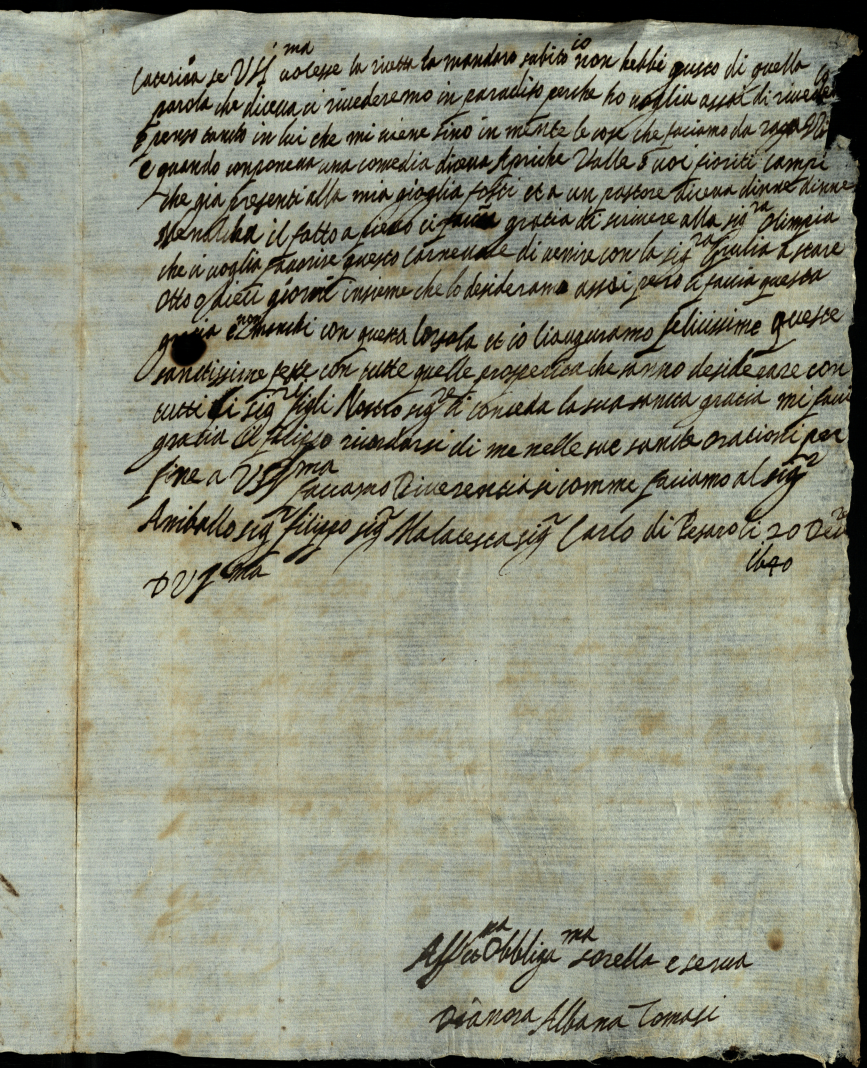 Caterina se VSIma volesse la rivetta la mandarò subito io non hebbi gusto di quella
parola che diceva ci rivederemo in paradiso perche ho voglia assai di
e penso tanto in lui che mi viene sino in mente le cose che faciamo da
e quando componeva una comedia diceva Apriche Valle e voi fioriti campi
che gia presenti alla mia gioglia fosti et a un pastore diceva dinne dinne
il fatto a pieno ci gratia di scrivere alla sigra Olimpia
che ci voglia favorire questo Carnevale di venire con la sigra Giulia a stare
otto o dieci giorni insieme che lo desideramo assai pero ci facia questa
gratia e non manchi con questa et io li auguramo felicissime queste
santissime feste con tutte quelle prosperita che sanno desiderare con
tutti li sigri figli Nostro sigr di conceda la sua santa gratia mi facci
gratia Filippo ricordarsi di me nelle sue sante orationi per
fine a VSIma facciamo Riverentia si comme faciamo al sigr
Aniballo sigr Filippo sigr Malatesta sigr Carlo di Pesaro li 20
1640
D VSIma
Affma et Obbligama sorella e serva
Dianora Albana Tomasi